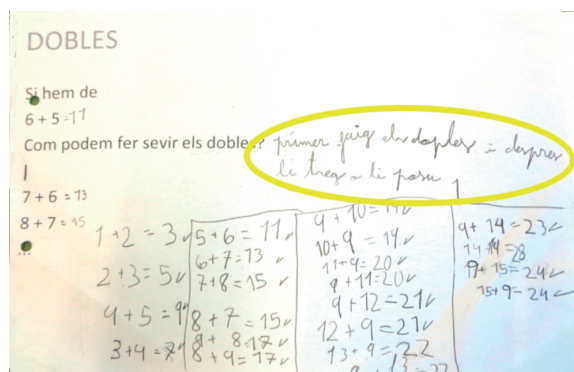 DOBLES
Si hem de
6 + 5 = 11
Com podem fer sevir els dobles?
primer faig els doples i despres
li treg o li posu 1
I
7 + 6 = 13
8 + 7 = 15
...
1 + 2 = 3
2 + 3 = 5
4 + 5 = 9
3 + 4 = 7
5 + 6 = 11
6 + 7 = 13
7 + 8 = 15
8 + 7 = 15
9 + 8 = 17
8 + 9 = 17
9 + 10 = 19
10 + 9 = 19
11 + 9 = 20
9 + 11 = 20
9 + 12 = 21
12 + 9 = 21
13 + 9 = 22
9 + 14 = 23
9 + 15 = 24
15 + 9 = 24